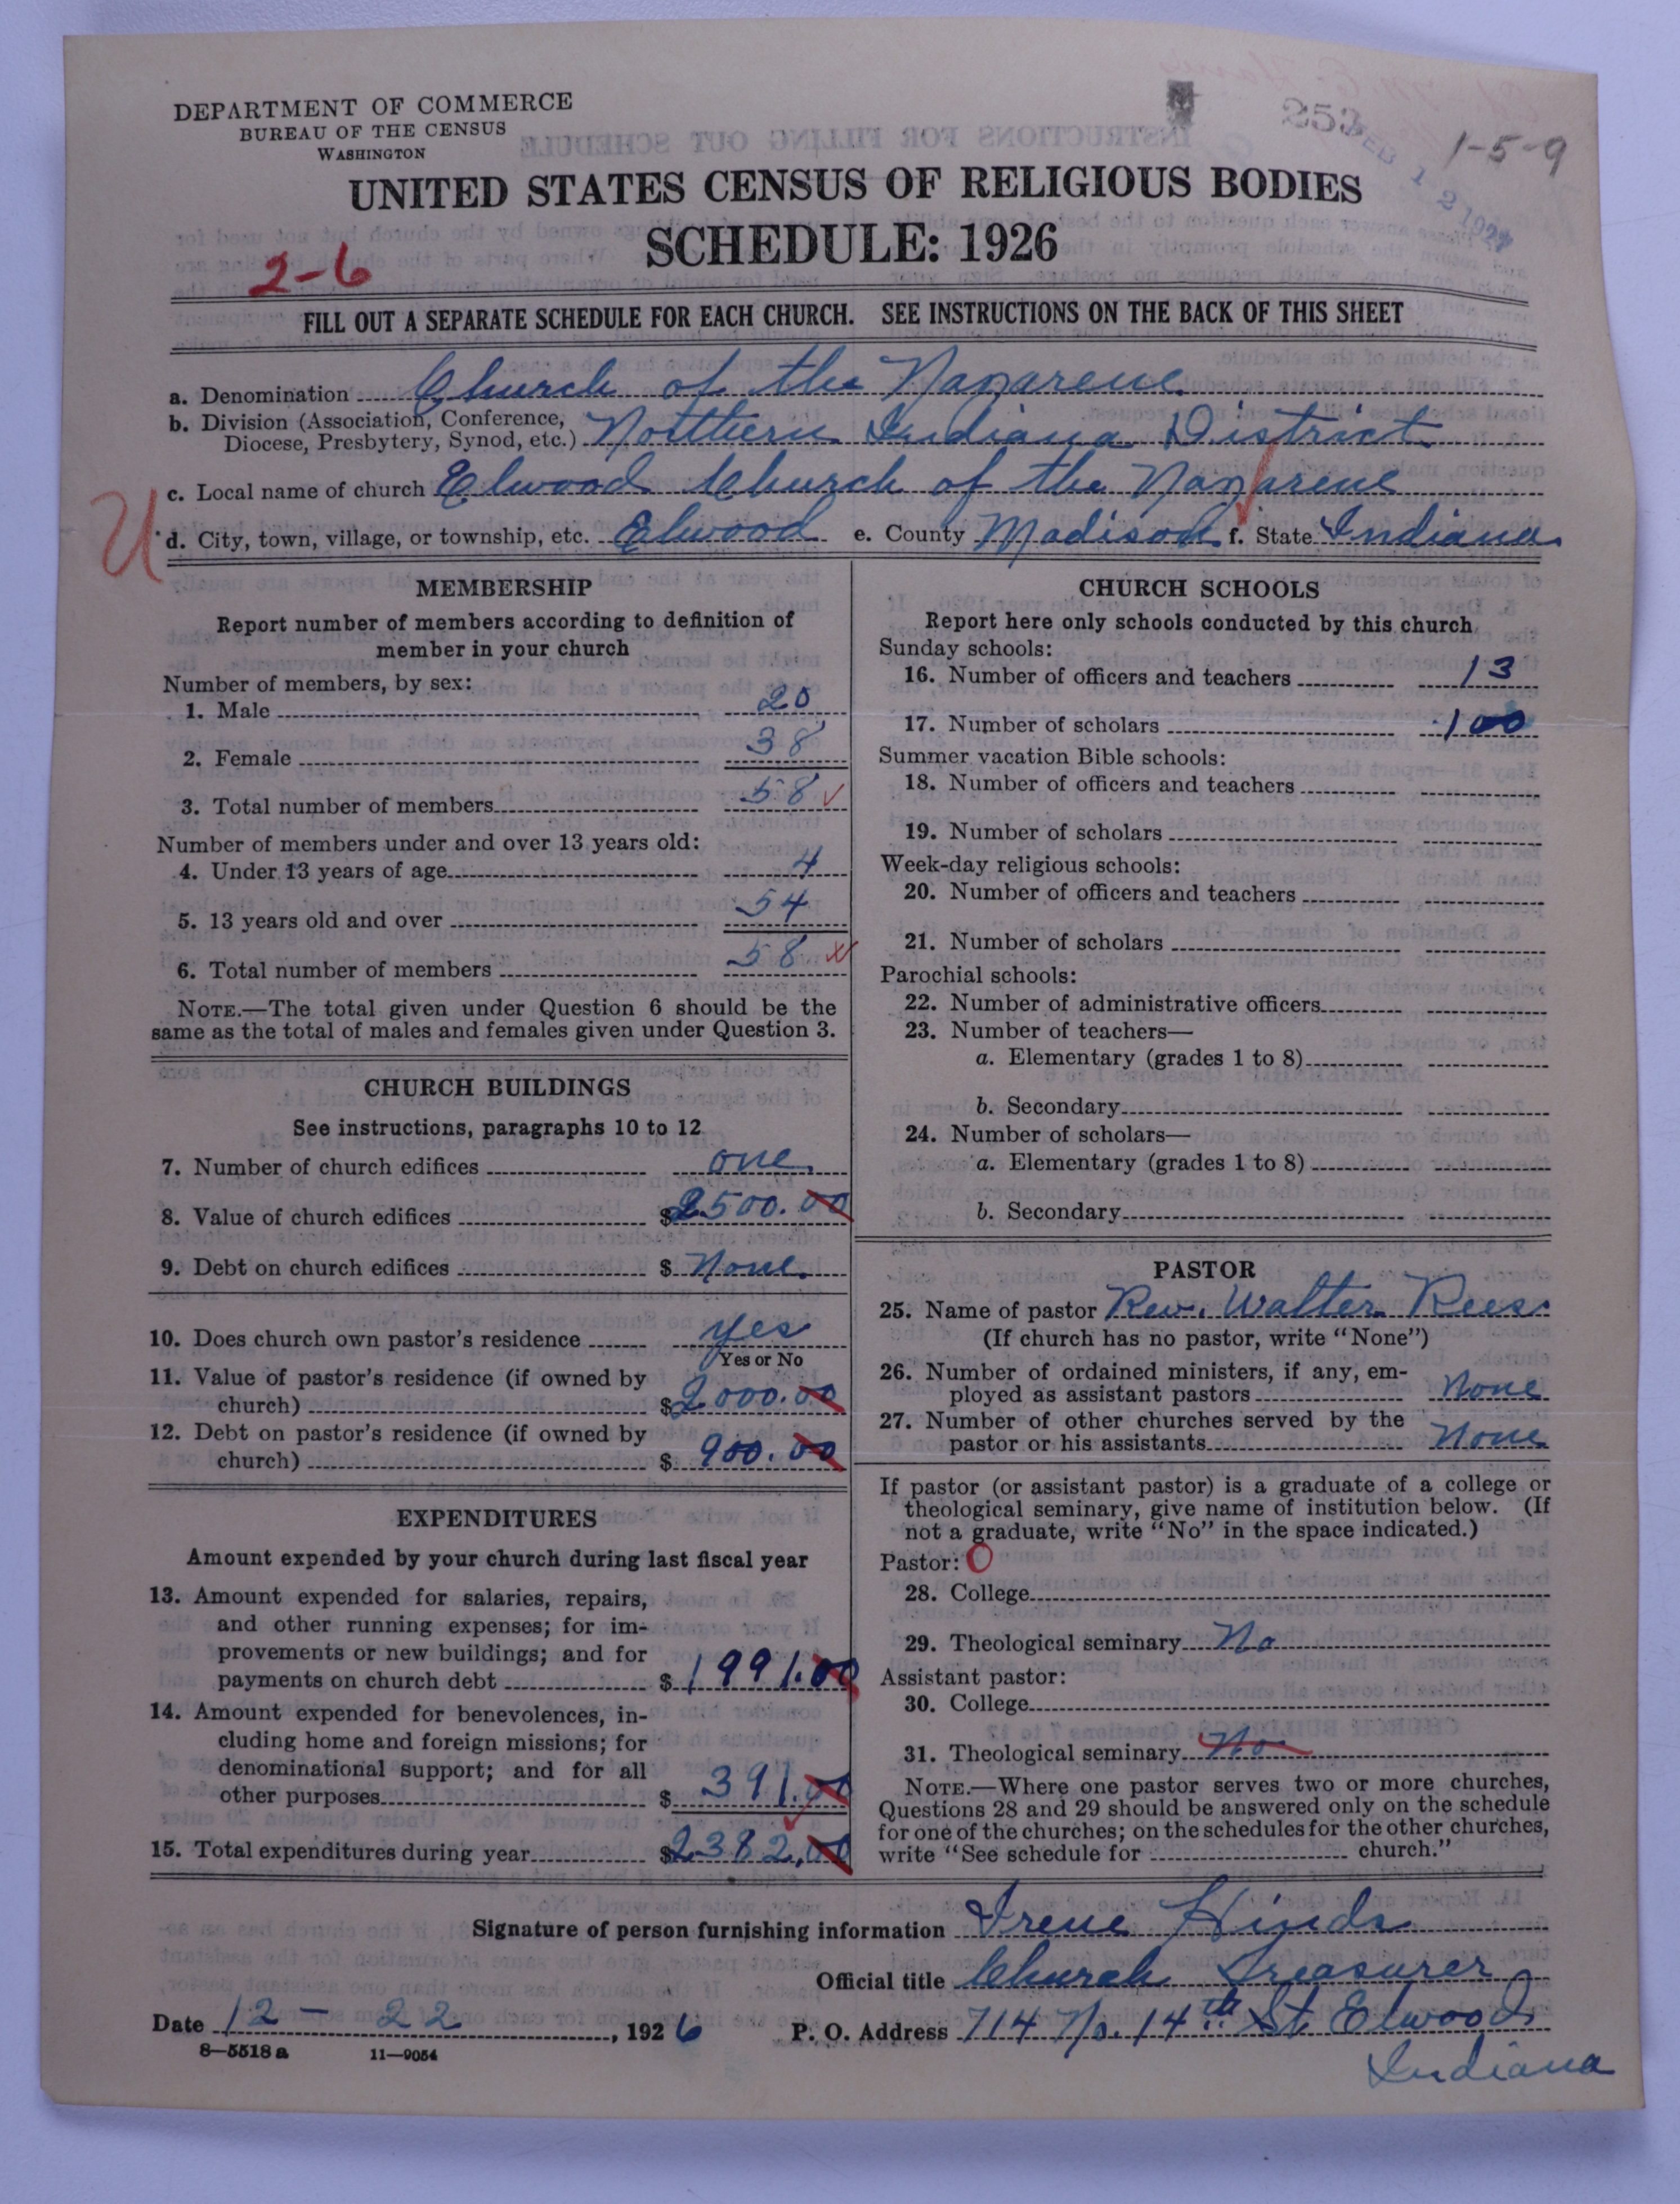 DEPARTMENT OF COMMERCE
BUREAU OF THE CENSUS
WASHINGTON
253
FEB 12 1927
1-5-9
UNITED STATES CENSUS OF RELIGIOUS BODIES
SCHEDULE: 1926
2-6
FILL OUT A SEPARATE SCHEDULE FOR EACH CHURCH. SEE INSTRUCTIONS ON THE BACK OF THIS SHEET
a. Denomination Church of the Nazarene
b. Division (Association, Conference,
Diocese, Presbytery, Synod, etc.) Northern Indiana District
c. Local name of church Elwood Church of the Nazarene
U
d. City, town, village, or township, etc. Elwood e. County Madison f. State Indiana
MEMBERSHIP
Report number of members according to definition of
member in your church
Number of members, by sex:
1. Male 20
2. Female 38
3. Total number of members 58
Number of members under and over 13 years old:
4. Under 13 years of age 4
5. 13 years old and over 54
6. Total number of members 58
NOTE.—The total given under Question 6 should be the
same as the total of males and females given under Question 3.
CHURCH BUILDINGS
See instructions, paragraphs 10 to 12
7. Number of church edifices one
8. Value of church edifices $2500.00
9. Debt on church edifices $ None
10. Does church own pastor's residence yes
Yes or No
11. Value of pastor's residence (if owned by
church) $2000.00
12. Debt on pastor's residence (if owned by
church) $ 900.00
EXPENDITURES
Amount expended by your church during last fiscal year
13. Amount expended for salaries, repairs,
and other running expenses; for im-
provements or new buildings; and for
payments on church debt $1991.00
14. Amount expended for benevolences, in-
cluding home and foreign missions; for
denominational support; and for all
other purposes $ 391.00
15. Total expenditures during year $2382.00
CHURCH SCHOOLS
Report here only schools conducted by this church
Sunday schools:
16. Number of officers and teachers 13
17. Number of scholars 100
Summer vacation Bible schools:
18. Number of officers and teachers
19. Number of scholars
Week-day religious schools:
20. Number of officers and teachers
21. Number of scholars
Parochial schools:
22. Number of administrative officers
23. Number of teachers—
a. Elementary (grades 1 to 8)
b. Secondary
24. Number of scholars—
a. Elementary (grades 1 to 8)
b. Secondary
PASTOR
25. Name of pastor Rev. Walter Rees
(If church has no pastor, write "None")
26. Number of ordained ministers, if any, em-
ployed as assistant pastors None
27. Number of other churches served by the
pastor or his assistants None
If pastor (or assistant pastor) is a graduate of a college or
theological seminary, give name of institution below. (If
not a graduate, write "No" in the space indicated.)
Pastor: O
28. College
29. Theological seminary No
Assistant pastor:
30. College
31. Theological seminary No
NOTE.—Where one pastor serves two or more churches,
Questions 28 and 29 should be answered only on the schedule
for one of the churches; on the schedules for the other churches,
write "See schedule for church."
Signature of person furnishing information Irene Hinds
Official title Church Treasurer
Date 12 - 22, 1926 P. O. Address 714 No. 14th St. Elwood
Indiana
8—5518 a 11—9054